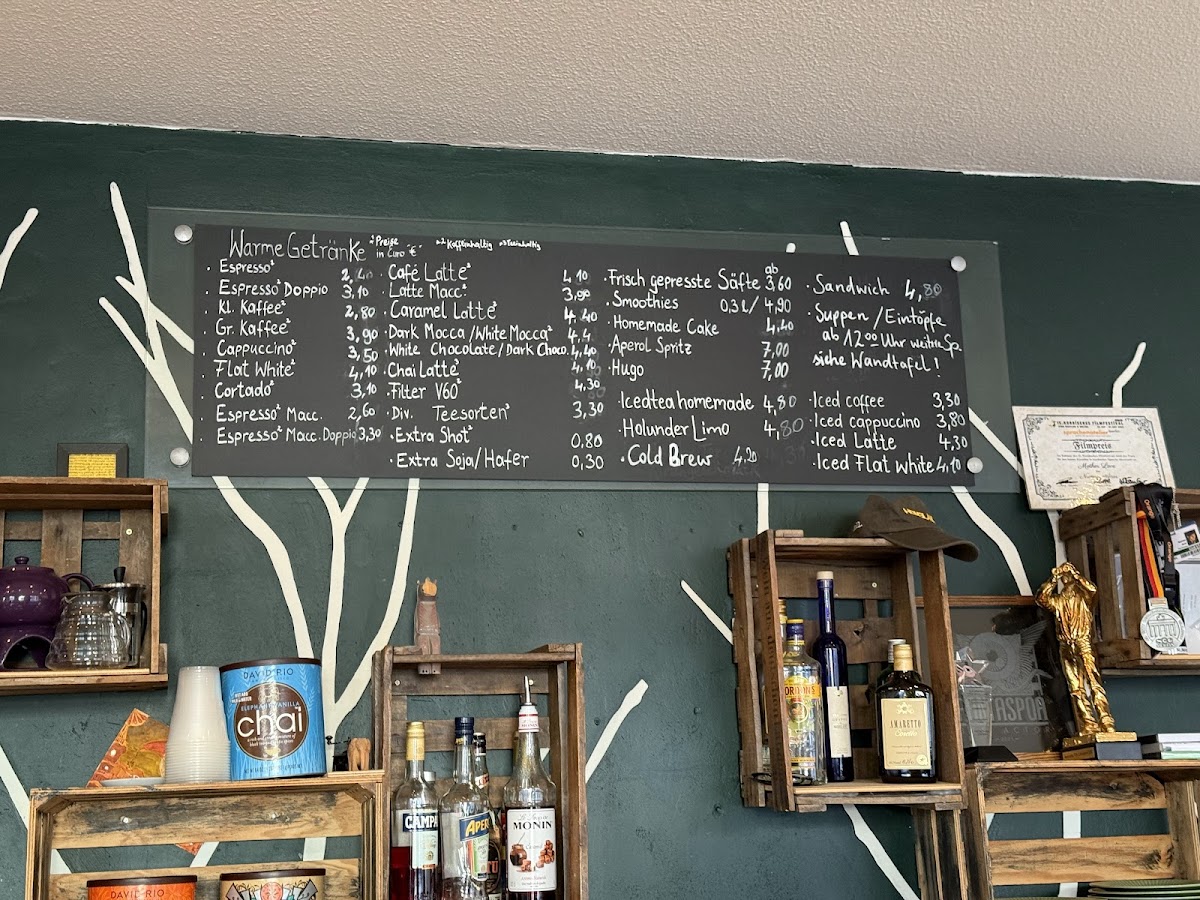 Warme Getränke
¹ Preise in Euro "€"
²=Koffeinhaltig ³=Teeinhaltig
· Espresso² 2,40
· Espresso² Doppio 3,10
· Kl. Kaffee² 2,80
· Gr. Kaffee² 3,90
· Cappuccino² 3,50
· Flat White² 4,10
· Cortado² 3,10
· Espresso² Macc. 2,60
· Espresso² Macc. Doppio 3,30
· Café Latte² 4,10
· Latte Macc.² 3,90
· Caramel Latte² 4,40
· Dark Mocca/White Mocca² 4,4
· White Chocolate/Dark Choco. 4,40
· Chai Latte³ 4,10
· Filter V60² 4,30
· Div. Teesorten³ 3,30
· Extra Shot² 0,80
· Extra Soja/Hafer 0,30
· Frisch gepresste Säfte ab 3,60
· Smoothies 0,3L/ 4,90
· Homemade Cake 4,40
· Aperol Spritz 7,00
· Hugo 7,00
· Icedtea homemade 4,80
· Holunder Limo 4,80
· Cold Brew 4,20
· Sandwich 4,80
· Suppen/Eintöpfe
ab 12 00 Uhr weitere Sp.
siehe Wandtafel!
· Iced coffee 3,30
· Iced cappuccino 3,80
· Iced Latte 4,30
· Iced Flat White 4,10
Filmpreis
DAVID RIO
ELEPHANT VANILLA
chai
CAMPA
APER
MONIN
GORDON'S
AMARETTO
ASPOR
ACTO
DAVID RIO